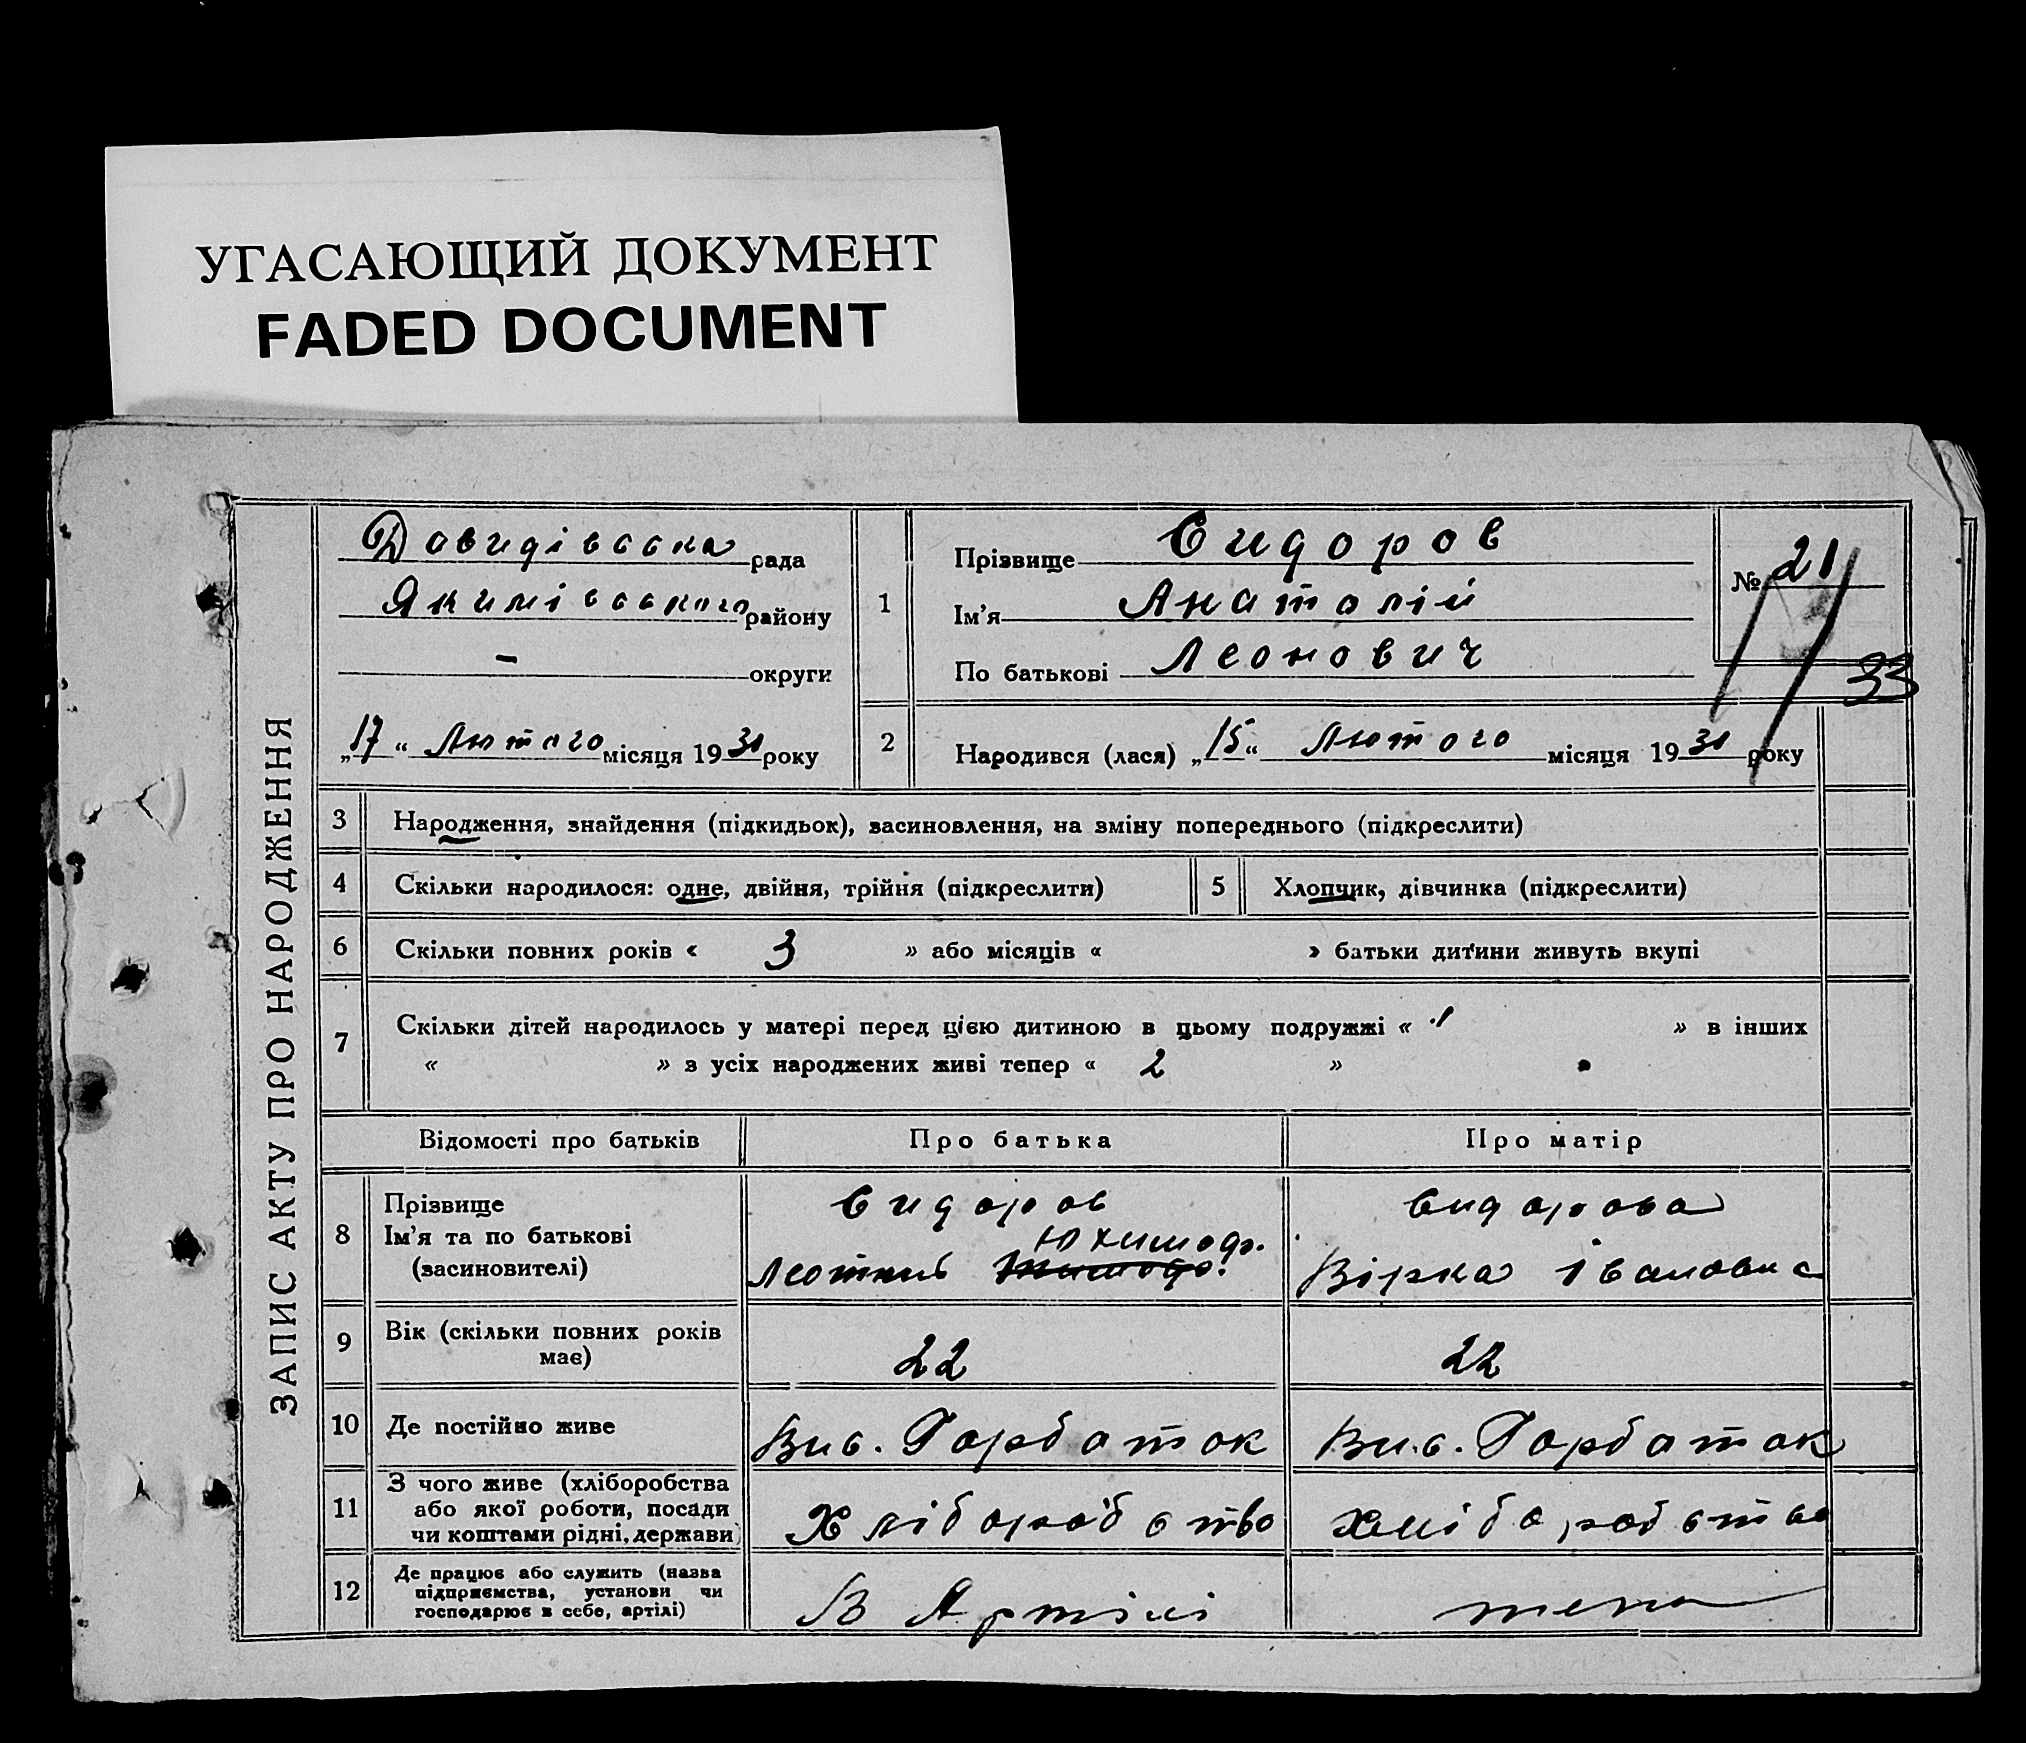 УГАСАЮЩИЙ ДОКУМЕНТ
FADED DOCUMENT
ЗАПИС АКТУ ПРО НАРОДЖЕННЯ
Давидівська рада
Якимівського району
– округи
„17“ Лютого місяця 1930 року
1
Прізвище Сидоров
Ім'я Анатолій
По батькові Леонович
№ 21
33
2 Народився (лася) „15“ Лютого місяця 1930 року
3 Народження, знайдення (підкидьок), засиновлення, на зміну попереднього (підкреслити)
4 Скільки народилося: одне, двійня, трійня (підкреслити) 5 Хлопчик, дівчинка (підкреслити)
6 Скільки повних років « 3 » або місяців « » батьки дитини живуть вкупі
7 Скільки дітей народилось у матері перед цією дитиною в цьому подружжі « 1 » в інших
« » з усіх народжених живі тепер « 2 »
Відомості про батьків Про батька Про матір
8 Прізвище Сидоров Сидорова
Ім'я та по батькові Юхимов.
(засновителі) Вірка Івановна
9 Вік (скільки повних років має) 22 22
10 Де постійно живе Вис. Горбаток Вис. Горбаток
11 З чого живе (хліборобства
або якої роботи, посади
чи коштами рідні, держави) Хліборобство хліборобство
12 Де працює або служить (назва
підприємства, установи чи
господарює в себе, артілі) В Артілі